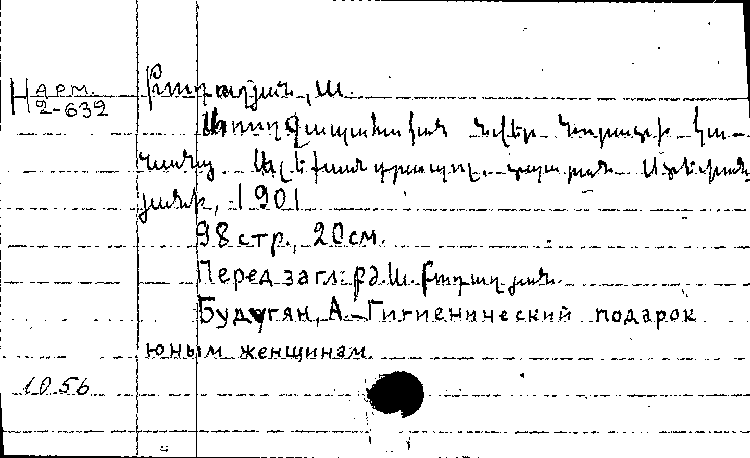 Н арм.
2-632
Բուդուղյան, Ա.
Առողջապահական նվեր նորատի կա-
նանց. Ալեքսանդրապոլ. տպարան
1901
98 стр., 20 см.
Перед загл: բժ. Ա. Բուդուղյան.
Будугян, А – Гигиенический подарок
юным женщинам.
1056